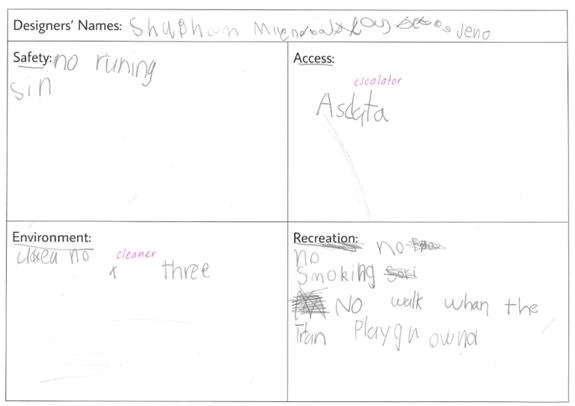 Designers' Names: Shubham Jeno
Safety: no runing
sin
Access:
escalator
Asdata
Environment:
no cleaner
x three
Recreation: no
no
Smoking
NO walk whan the
Tran Playgn ownd